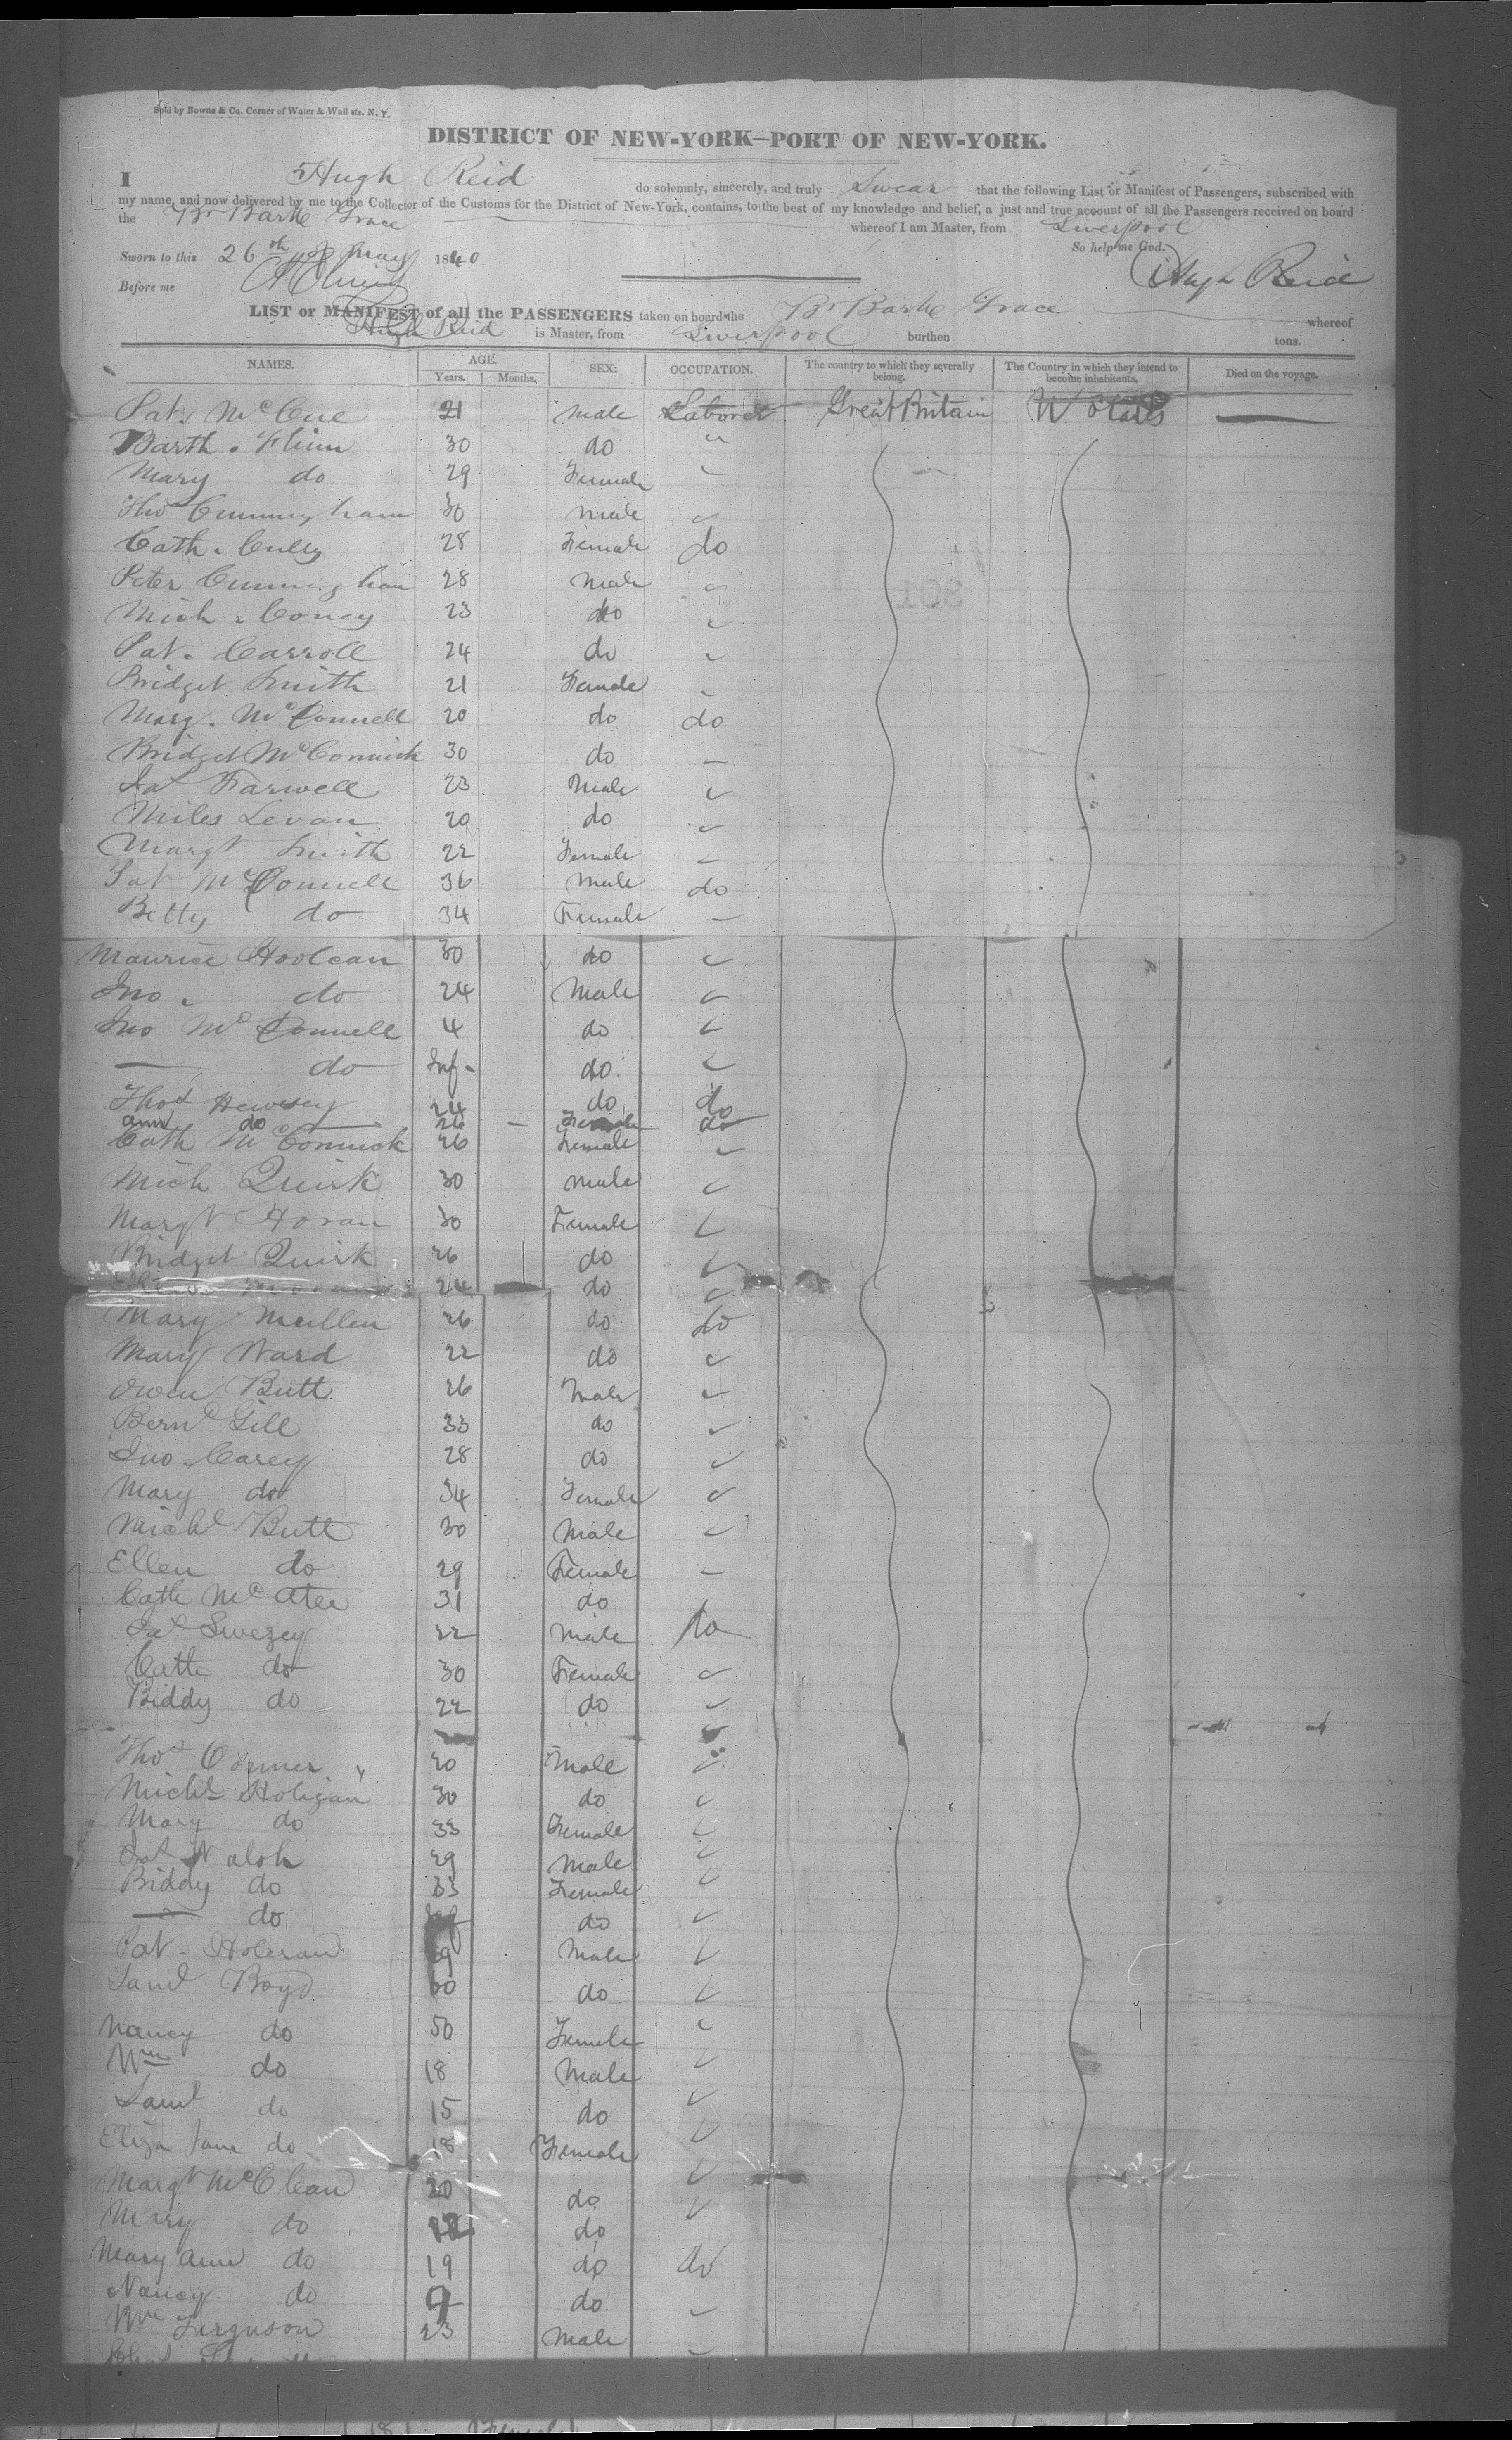 Sold by Bowne & Co. Corner of Water & Wall sts. N. Y.
DISTRICT OF NEW-YORK—PORT OF NEW-YORK.
I Hugh Reid do solemnly, sincerely, and truly Swear that the following List or Manifest of Passengers, subscribed with
my name, and now delivered by me to the Collector of the Customs for the District of New-York, contains, to the best of my knowledge and belief, a just and true account of all the Passengers received on board
the Br Barke Grace whereof I am Master, from Liverpool
Sworn to this 26th of May 1840 So help me God.
Before me Hugh Reid
LIST or MANIFEST of all the PASSENGERS taken on board the Br Barke Grace whereof
Hugh Reid is Master, from Liverpool burthen tons.
NAMES. AGE. Years. Months. SEX. OCCUPATION. The country to which they severally belong. The Country in which they intend to become inhabitants. Died on the voyage.
Pat. McCue 21 Male Laborer Great Britain U States
Barth. Flinn 30 do
Mary do 29 Female
Thos Cunningham 30 Male
Cath. Cully 28 Female do
Peter Cunningham 28 Male
Mich. Coney 23 do
Pat. Carroll 24 do
Bridget Smith 21 Female
Marg. McConnell 20 do do
Bridget McCormick 30 do
Jas Farwell 23 Male
Miles Levan 20 do
Margt Smith 22 Female
Pat McConnell 36 Male do
Betty do 34 Female
Maurice Hoolean 30 do
Jno. do 24 Male
Jno McConnell 4 do
— do Inf. do
Thos Hewsey 24 do do
Ann do 26 — Female do
Cath McCormick 26 Female
Mich Quirk 30 Male
Margt Horan 30 Female
Bridget Quirk 26 do
24 do
Mary Mullen 26 do do
Mary Ward 22 do
Owen Butt 26 Male
Bernd Gill 33 do
Jno. Carey 28 do
Mary do 34 Female
Michl Butt 30 Male
Ellen do 29 Female
Cath McAtee 31 do
Jas Swezey 22 Male do
Cath do 30 Female
Biddy do 22 do
Thos Cormer 20 Male
Michl Holigan 30 do
Mary do 33 Female
Jas Walsh 29 Male
Biddy do 33 Female
— do do
Pat. Holeran Male
Saml Boyd 60 do
Nancy do 50 Female
Wm do 18 Male
Saml do 15 do
Eliza Jane do 18 Female
Margt McClean 20 do
Mary do 12 do
Mary Ann do 19 do do
Nancy do 9 do
Wm Ferguson 23 Male
18 Female